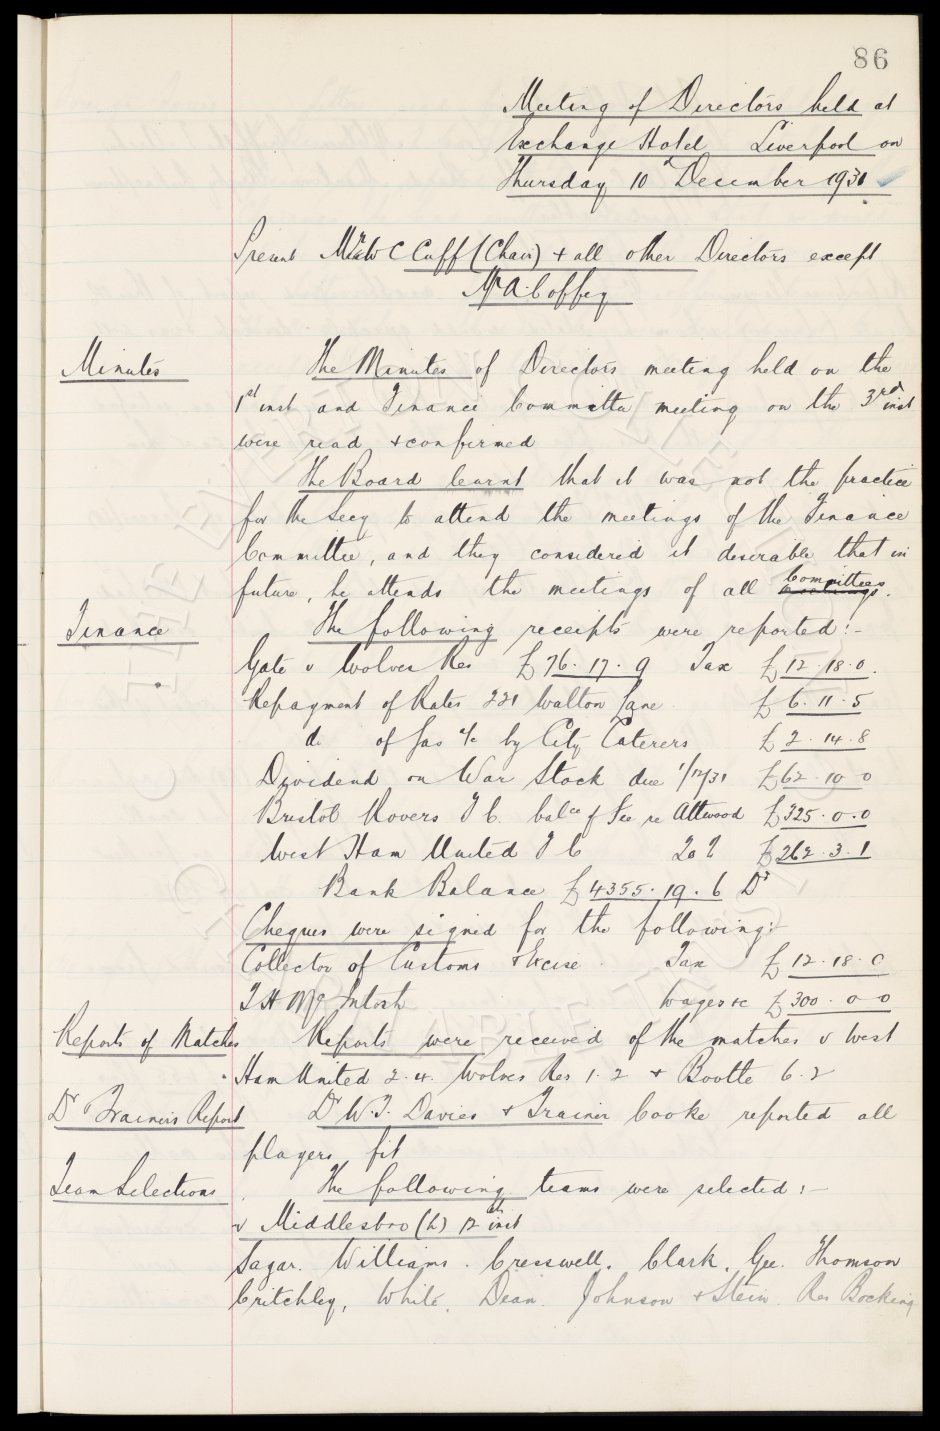 86
Meeting of Directors held at
Exchange Hotel Liverpool on
Thursday 10th December 1931
Present Mr W C Cuff (Chair) + all other Directors except
Mr A. Coffey
Minutes
The Minutes of Directors meeting held on the
1st inst and Finance Committee meeting on the 3rd inst
were read + confirmed
The Board learnt that it was not the practice
for the Secy to attend the meetings of the Finance
Committee, and they considered it desirable that in
future, he attends the meetings of all meetings Committees.
Finance
The following receipts were reported:-
Gate v Wolves Res £76.17.9 Tax £12.18.0.
Repayment of Rates 221 Walton Lane £6.11.5
do of Gas a/c by City Caterers £2.14.8
Dividend on War Stock due 1/12/31 £62.10.0
Bristol Rovers F C. balce of Fee re Attwood £325.0.0
West Ham United F C £262.3.1
Bank Balance £4355.19.6 Dr
Cheques were signed for the following:-
Collector of Customs + Excise Tax £12.18.0
T H McIntosh Wages +c £300.0.0
Reports of Matches
Reports were received of the matches v West
Ham United 2.4. Wolves Res 1.2 + Bootle 6.2
Dr Trainers Report
Dr W.T. Davies + Trainer Cooke reported all
players fit
Team Selections
The following teams were selected:-
v Middlesbro (h) 12th inst
Sagar. Williams. Cresswell. Clark. Gee. Thomson
Critchley, White, Dean. Johnson + Stein. Res Bocking